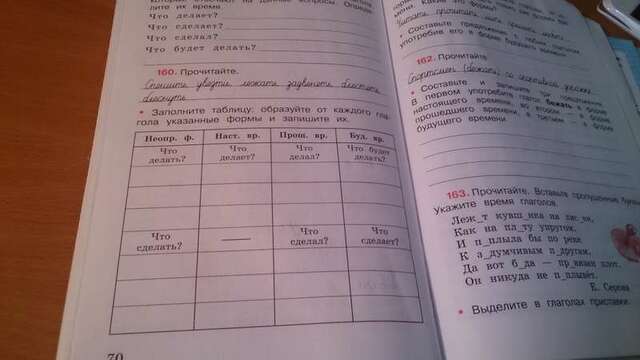 Что делает?
Что сделает?
Что сделал?
Что будет делать?
160. Прочитайте.
Спешить, увезти, лежать, зазвенеть, блестеть,
блеснуть.
• Заполните таблицу: образуйте от каждого гла-
гола указанные формы и запишите их.
Неопр. ф. Наст. вр. Прош. вр. Буд. вр.
Что делать? Что делает? Что делал? Что будет делать?
Что сделать? — Что сделал? Что сделает?
70
• Составьте предложение с любым глаголом,
употребив его в форме будущего времени.
162. Прочитайте.
Спортсмен (бежать) со
• Составьте и запишите три предложения.
В первом употребите глагол бежать в форме
настоящего времени, во втором — в форме
прошедшего времени, в третьем — в форме
будущего времени.
163. Прочитайте. Вставьте пропущенные буквы.
Укажите время глаголов.
Леж_т кувш_нка на
Как на пл_ту упругом,
И п_плыла бы по реке
К з_думчивым п_другам,
Да вот б_да — пр_вязан плот.
Он никуда не п_плывёт.
Е. Серова
• Выделите в глаголах приставки.